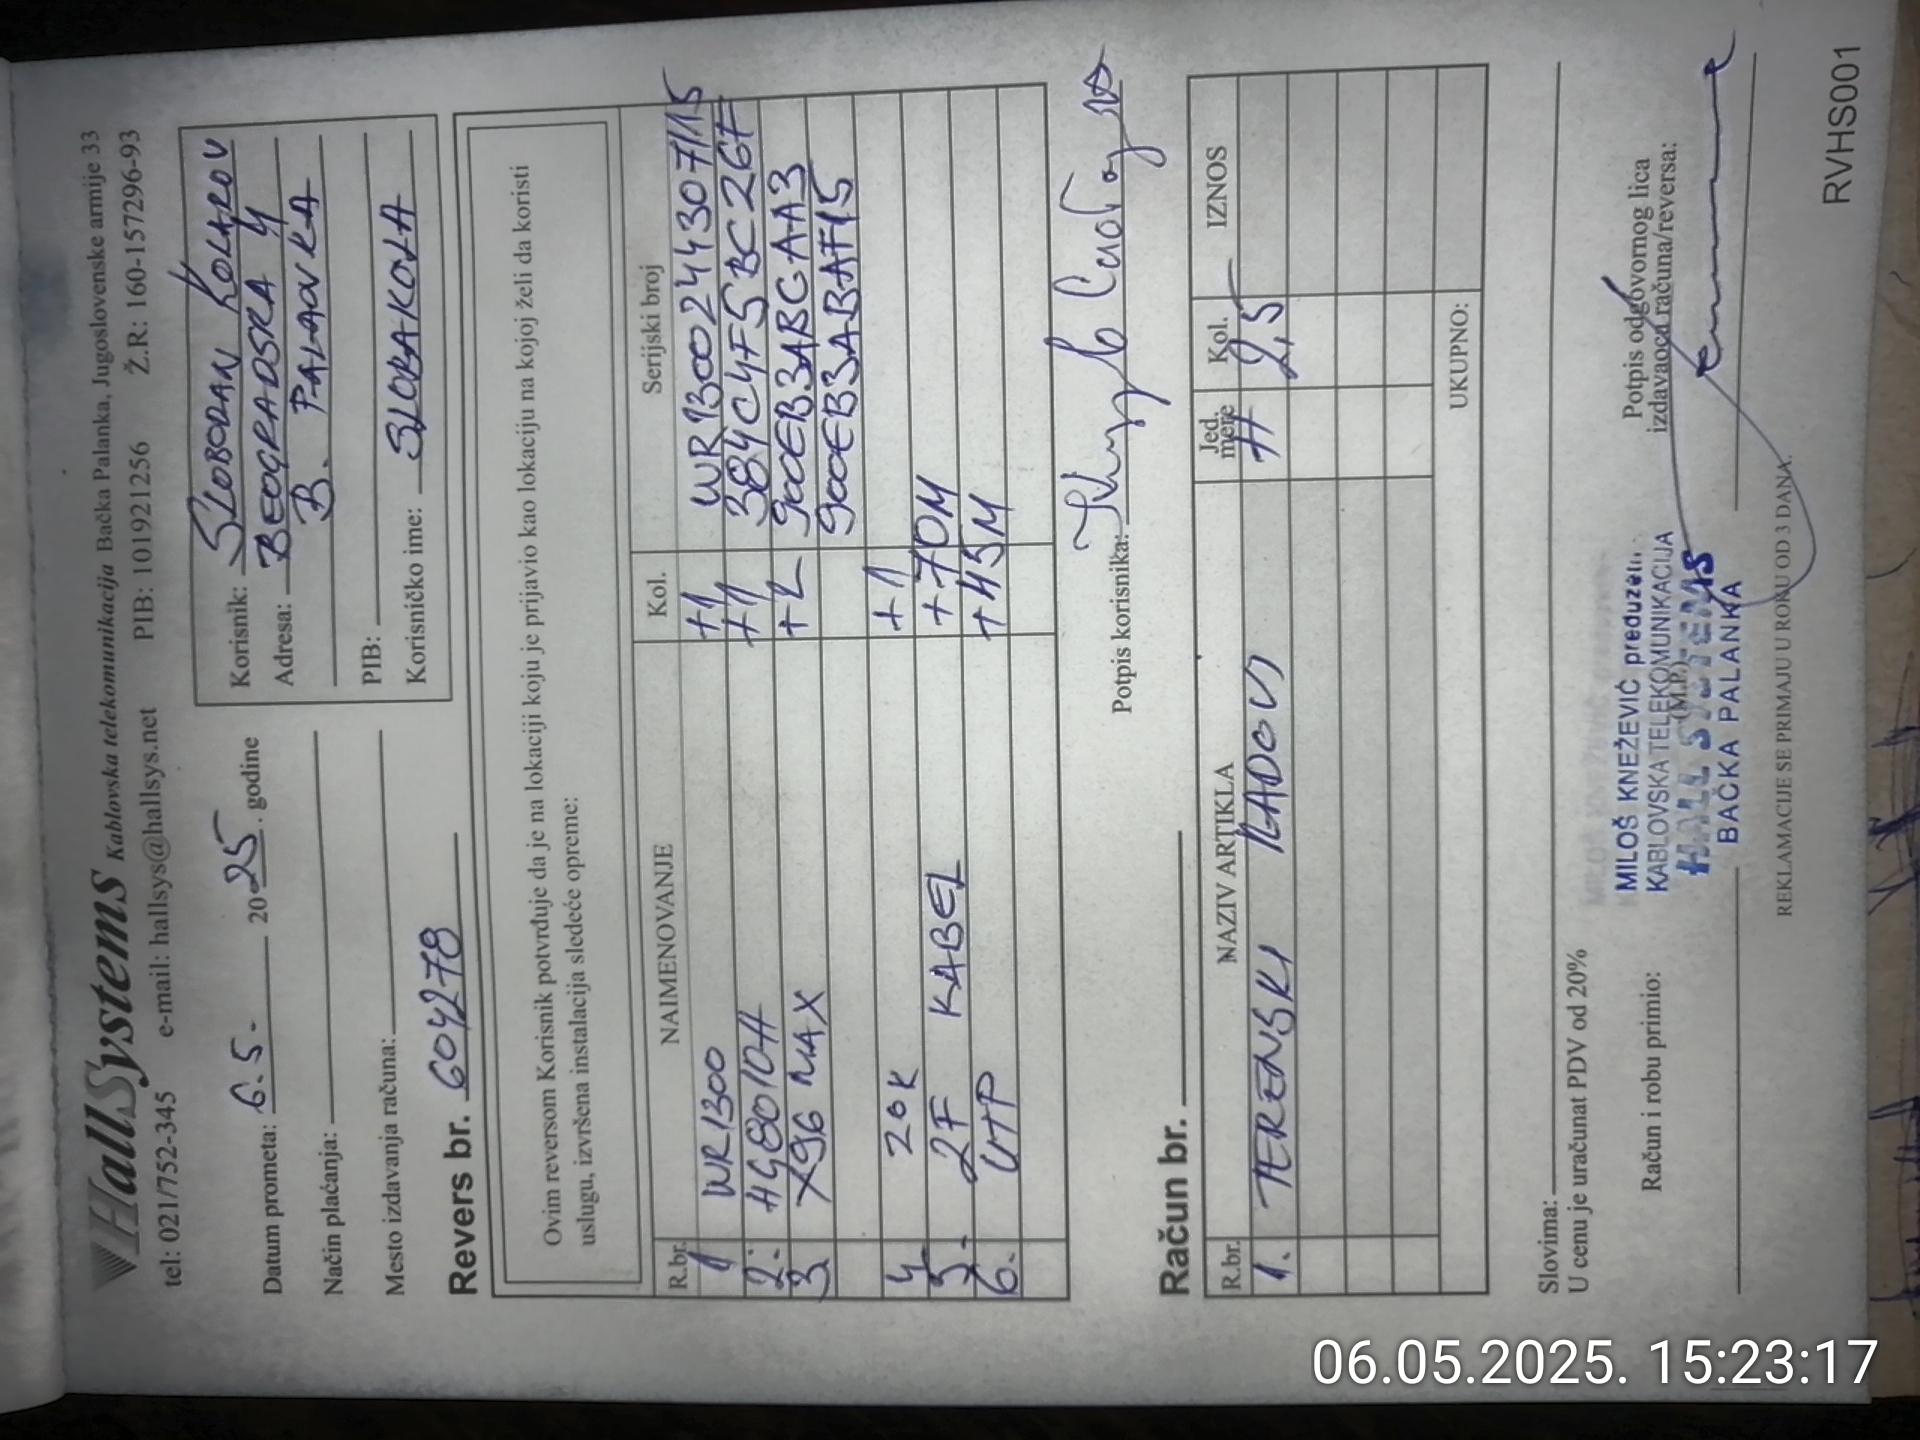 HallSystems Kablovska telekomunikacija Bačka Palanka, Jugoslovenske armije 33
tel: 021/752-345 e-mail: hallsys@hallsys.net PIB: 101921256 Ž.R: 160-157296-93
Datum prometa: 6.5. 2025. godine
Način plaćanja:
Mesto izdavanja računa:
Korisnik: SLOBODAN KOLAROV
Adresa: BEOGRADSKA 4
B. PALANKA
PIB:
Korisničko ime: SLOBAKOLA
Revers br. 604278
Ovim reversom Korisnik potvrđuje da je na lokaciji koju je prijavio kao lokaciju na kojoj želi da koristi
uslugu, izvršena instalacija sledeće opreme:
R.br. NAIMENOVANJE Kol. Serijski broj
1 WR1300 +1 WR1300244307115
2. HG8010H +1 384C4F5BC26F
3. X96 MAX +2 900EB3ABGAA3
900EB3ABAF15
4. ZOK +1
5. 2F KABEL +70M
6. UTP +45M
Potpis korisnika:
Račun br.
R.br. NAZIV ARTIKLA Jed. mere Kol. IZNOS
1. TERENSKI RADOVI H 2,5
UKUPNO:
Slovima:
U cenu je uračunat PDV od 20%
Račun i robu primio:
MILOŠ KNEŽEVIĆ preduzetn.
KABLOVSKA TELEKOMUNIKACIJA
(M.P.)
HALL SYSTEMS
BAČKA PALANKA
Potpis odgovornog lica
izdavaoca računa/reversa:
REKLAMACIJE SE PRIMAJU U ROKU OD 3 DANA.
RVHS001
06.05.2025. 15:23:17